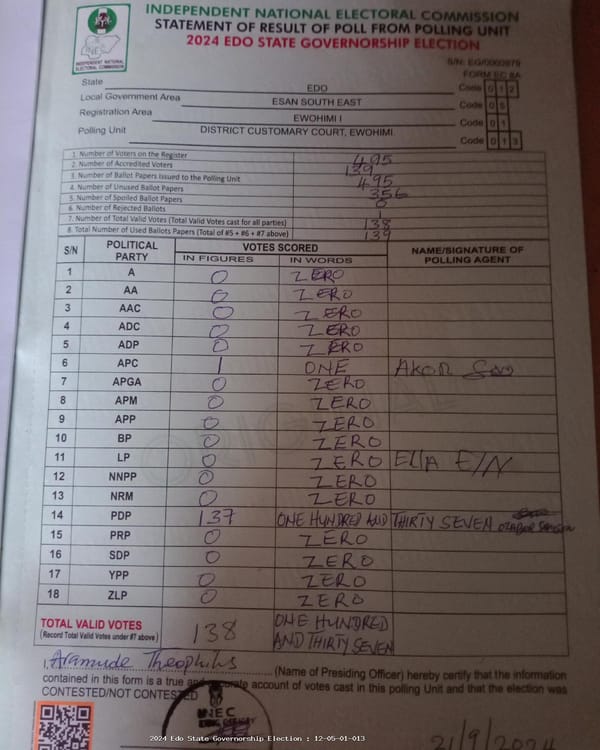 INDEPENDENT NATIONAL ELECTORAL COMMISSION
STATEMENT OF RESULT OF POLL FROM POLLING UNIT
2024 EDO STATE GOVERNORSHIP ELECTION
INEC
INDEPENDENT NATIONAL ELECTORAL COMMISSION
FORM EC 8A
State EDO Code 0 1 2
Local Government Area ESAN SOUTH EAST Code 0 5
Registration Area EWOHIMI I Code 0 1
Polling Unit DISTRICT CUSTOMARY COURT, EWOHIMI Code 0 1 3
1. Number of Voters on the Register 495
2. Number of Accredited Voters 139
3. Number of Ballot Papers Issued to the Polling Unit 495
4. Number of Unused Ballot Papers 356
5. Number of Spoiled Ballot Papers 0
6. Number of Rejected Ballots 1
7. Number of Total Valid Votes (Total Valid Votes cast for all parties) 138
8. Total Number of Used Ballots Papers (Total of #5 + #6 + #7 above) 139
S/N POLITICAL PARTY VOTES SCORED NAME/SIGNATURE OF POLLING AGENT
IN FIGURES IN WORDS
1 A 0 ZERO
2 AA 0 ZERO
3 AAC 0 ZERO
4 ADC 0 ZERO
5 ADP 0 ZERO
6 APC 1 ONE AKOR
7 APGA 0 ZERO
8 APM 0 ZERO
9 APP 0 ZERO
10 BP 0 ZERO
11 LP 0 ZERO
12 NNPP 0 ZERO
13 NRM 0 ZERO
14 PDP 137 ONE HUNDRED AND THIRTY SEVEN
15 PRP 0 ZERO
16 SDP 0 ZERO
17 YPP 0 ZERO
18 ZLP 0 ZERO
TOTAL VALID VOTES 138 ONE HUNDRED
(Record Total Valid Votes under #7 above) AND THIRTY SEVEN
I, Aramude Theophilus (Name of Presiding Officer) hereby certify that the information
contained in this form is a true and account of votes cast in this polling Unit and that the election was
CONTESTED/NOT CONTESTED
INEC
21/9/2024
2024 Edo State Governorship Election : 12-05-01-013